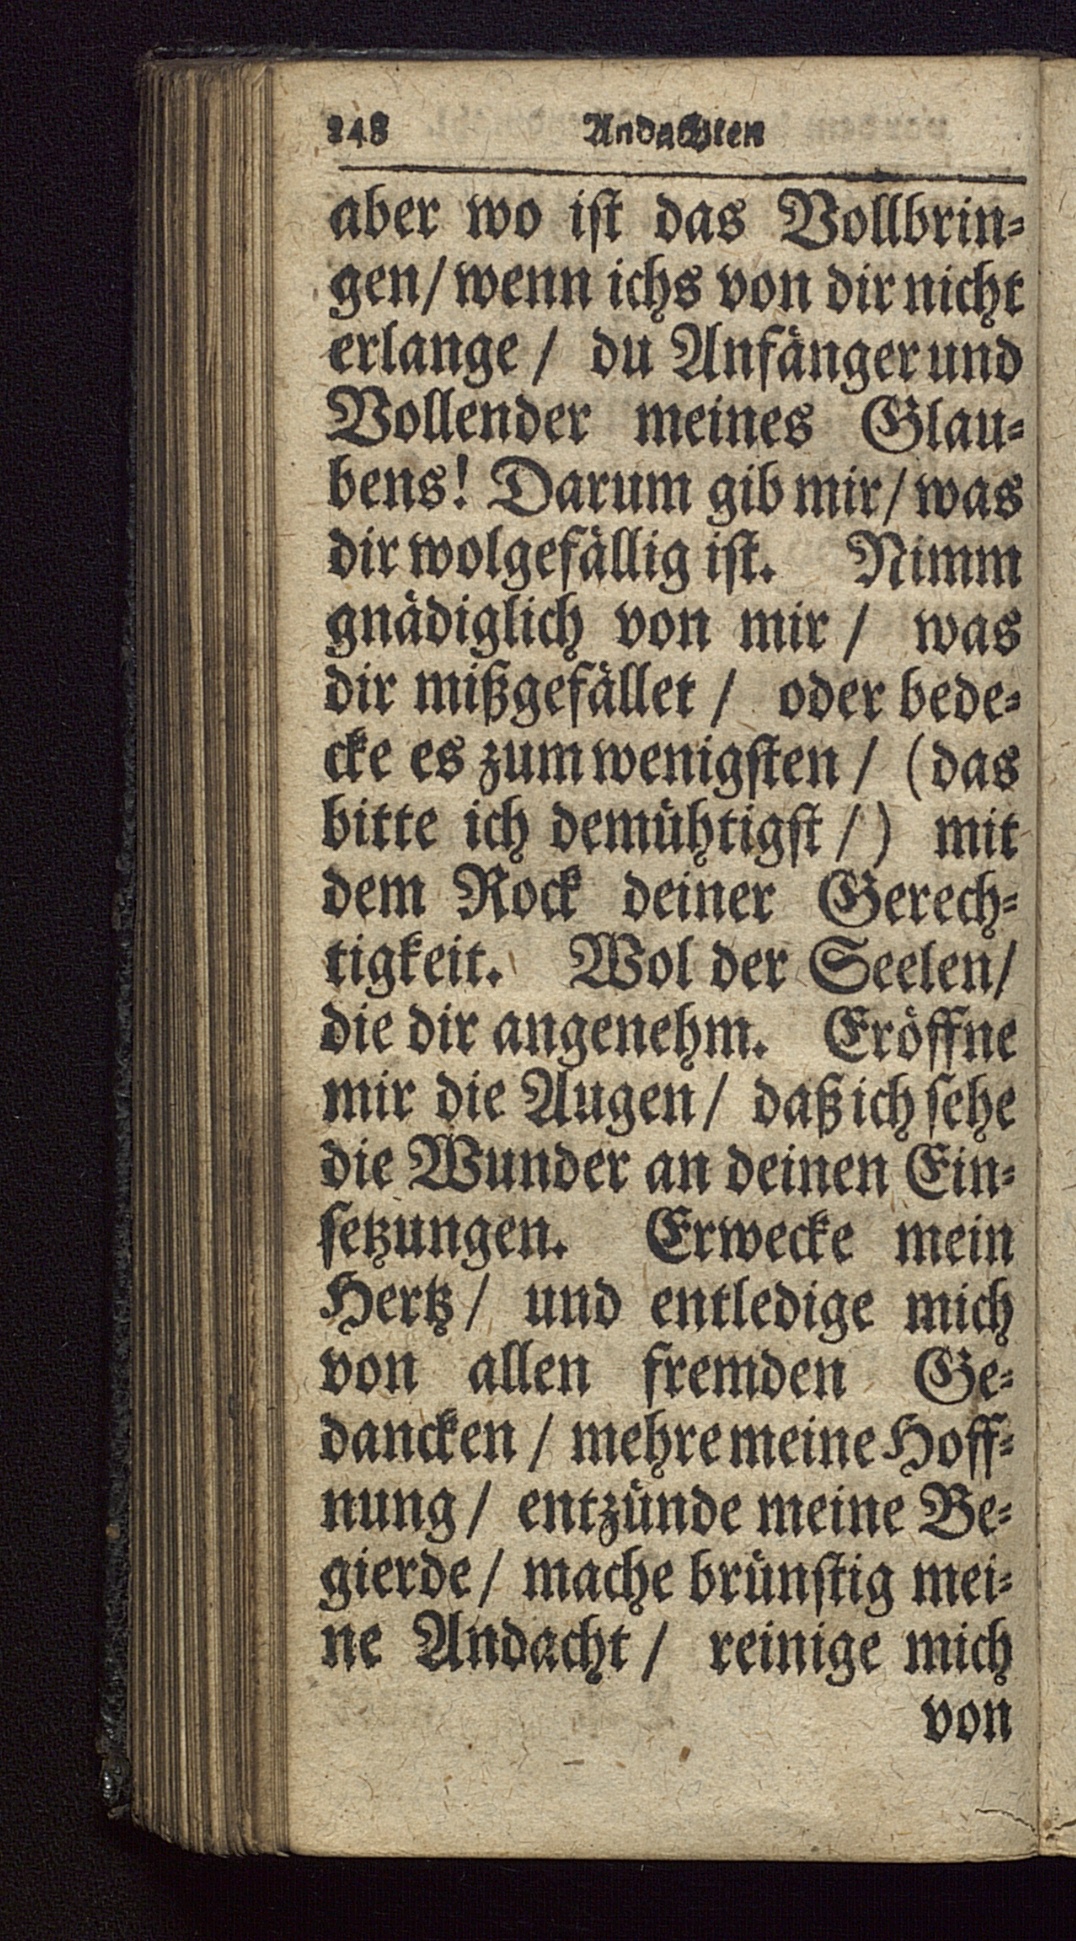 248 Andachten
aber wo iſt das Vollbrin⸗
gen/ wenn ichs von dir nicht
erlange / du Anfänger und
Vollender meines Glau⸗
bens! Darum gib mir/ was
dir wolgefällig iſt. Nimm
gnädiglich von mir / was
dir mißgefället / oder bede⸗
cke es zum wenigſten / (das
bitte ich demühtigſt /) mit
dem Rock deiner Gerech⸗
tigkeit. Wol der Seelen/
die dir angenehm. Eröffne
mir die Augen/ daß ich ſehe
die Wunder an deinen Ein⸗
ſetzungen. Erwecke mein
Hertz / und entledige mich
von allen fremden Ge⸗
dancken / mehre meine Hoff⸗
nung / entzünde meine Be⸗
gierde / mache brünſtig mei⸗
ne Andacht / reinige mich
von